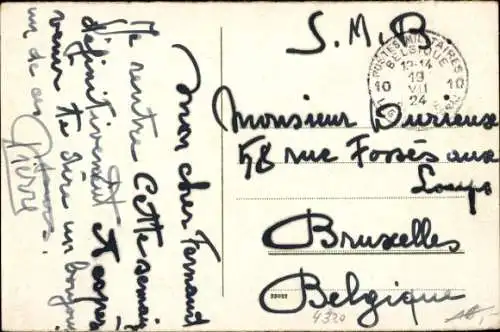 mon cher Fernand
Je rentre cette semaine
définitivement & espère
venir te dire un bonjour
un de ces
Pierre
S.M.B.
POSTES MILITAIRES
BELGIQUE
13-14
10 19 10
VII
24
Monsieur Durieux
58 rue Fossés aux
Loups
Bruxelles
Belgique
4320